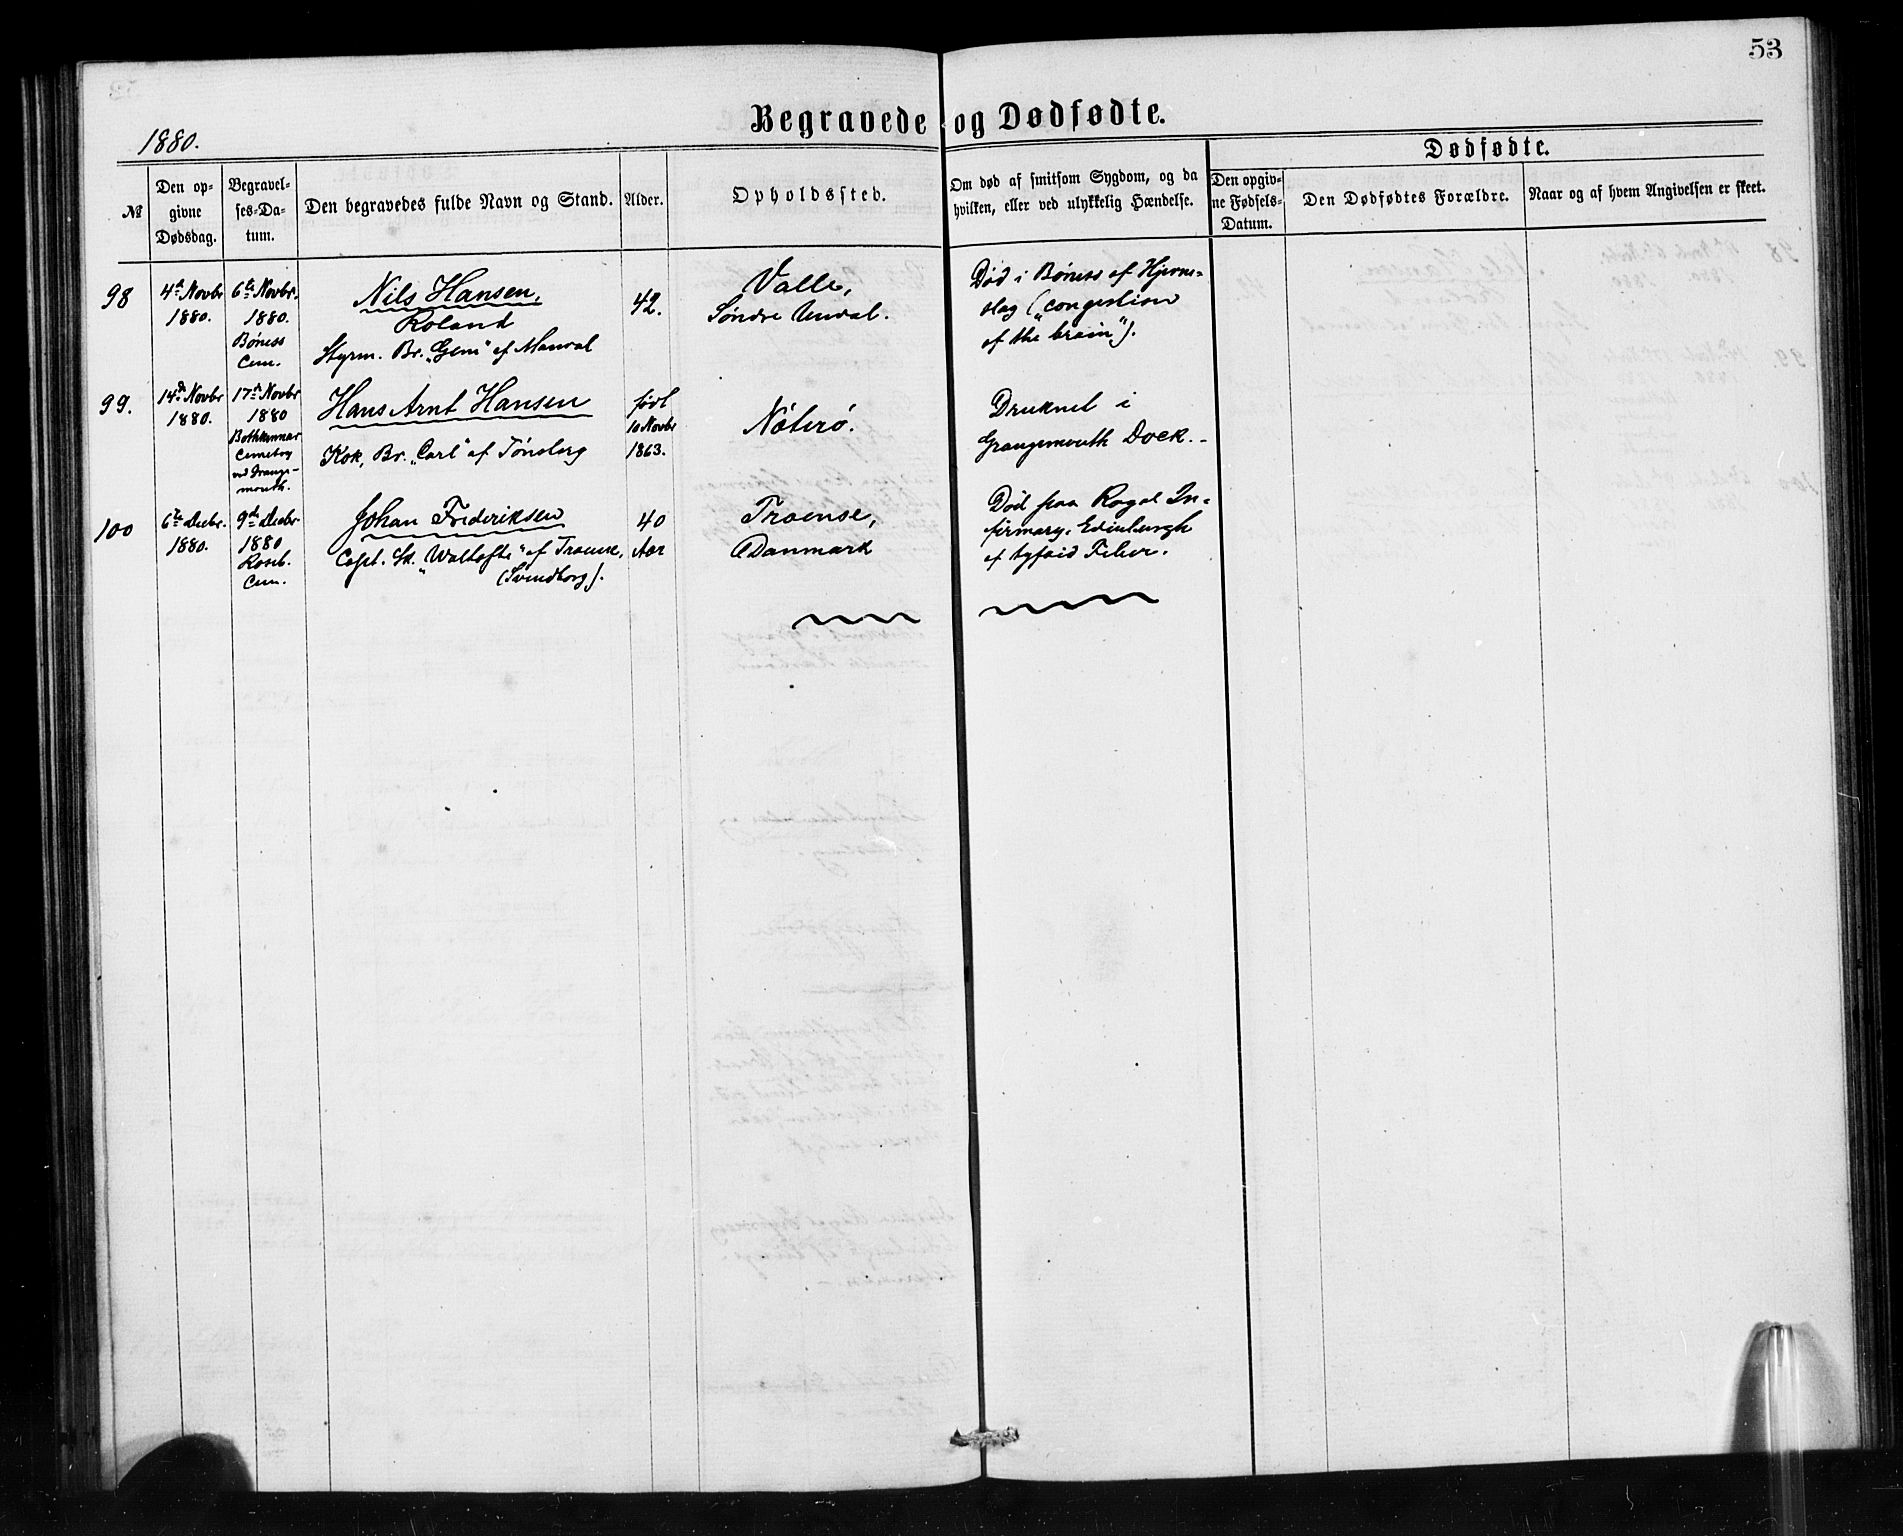 53
Begravede og Dødfødte.
1880.
Dødfødte.
№
Den op-
givne
Dødsdag.
Begravel-
ses-Da-
tum.
Den begravedes fulde Navn og Stand.
Alder.
Opholdssted.
Om død af smitsom Sygdom, og da
hvilken, eller ved ulykkelig Hændelse.
Den opgiv-
ne Fødsels-
Datum.
Den Dødfødtes Forældre.
Naar og af hvem Angivelsen er skeet.
98
4de Novbr
1880.
6te Novbr.
1880.
Bóness
Cem.
Nils Hansen,
Roland
Styrm. Br. „Gem" af Manval
42.
Valle,
Söndre Undal.
Død i Bóness af Hjerne-
slag („congestion
of the brain").
99.
14de Novbr
1880.
17de Novbr
1880
Bothkennar
Cemetry
ved Grange-
mouth.
Hans Arnt Hansen
Kok, Br. „Carl" af Tönsberg
født
10 Novbr
1863.
Nöterö.
Druknet i
Grangemouth Dock. -
100
6te Decbr.
1880.
9de Decbr
1880
Roseb.
Cem.
Johan Frederiksen
Capt. Sk. „Waltofte" af Troense,
(Svendborg).
40
Aar
Troense,
Danmark
Död paa Royal In-
firmary, Edinburgh
af tyfoid Feber.